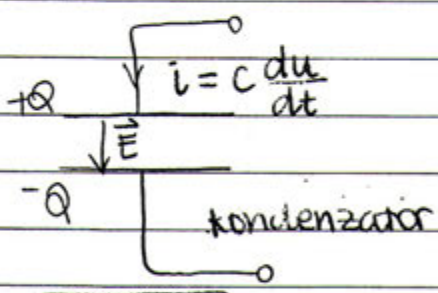 i = C du/dt
+Q
E⃗
-Q
kondenzator